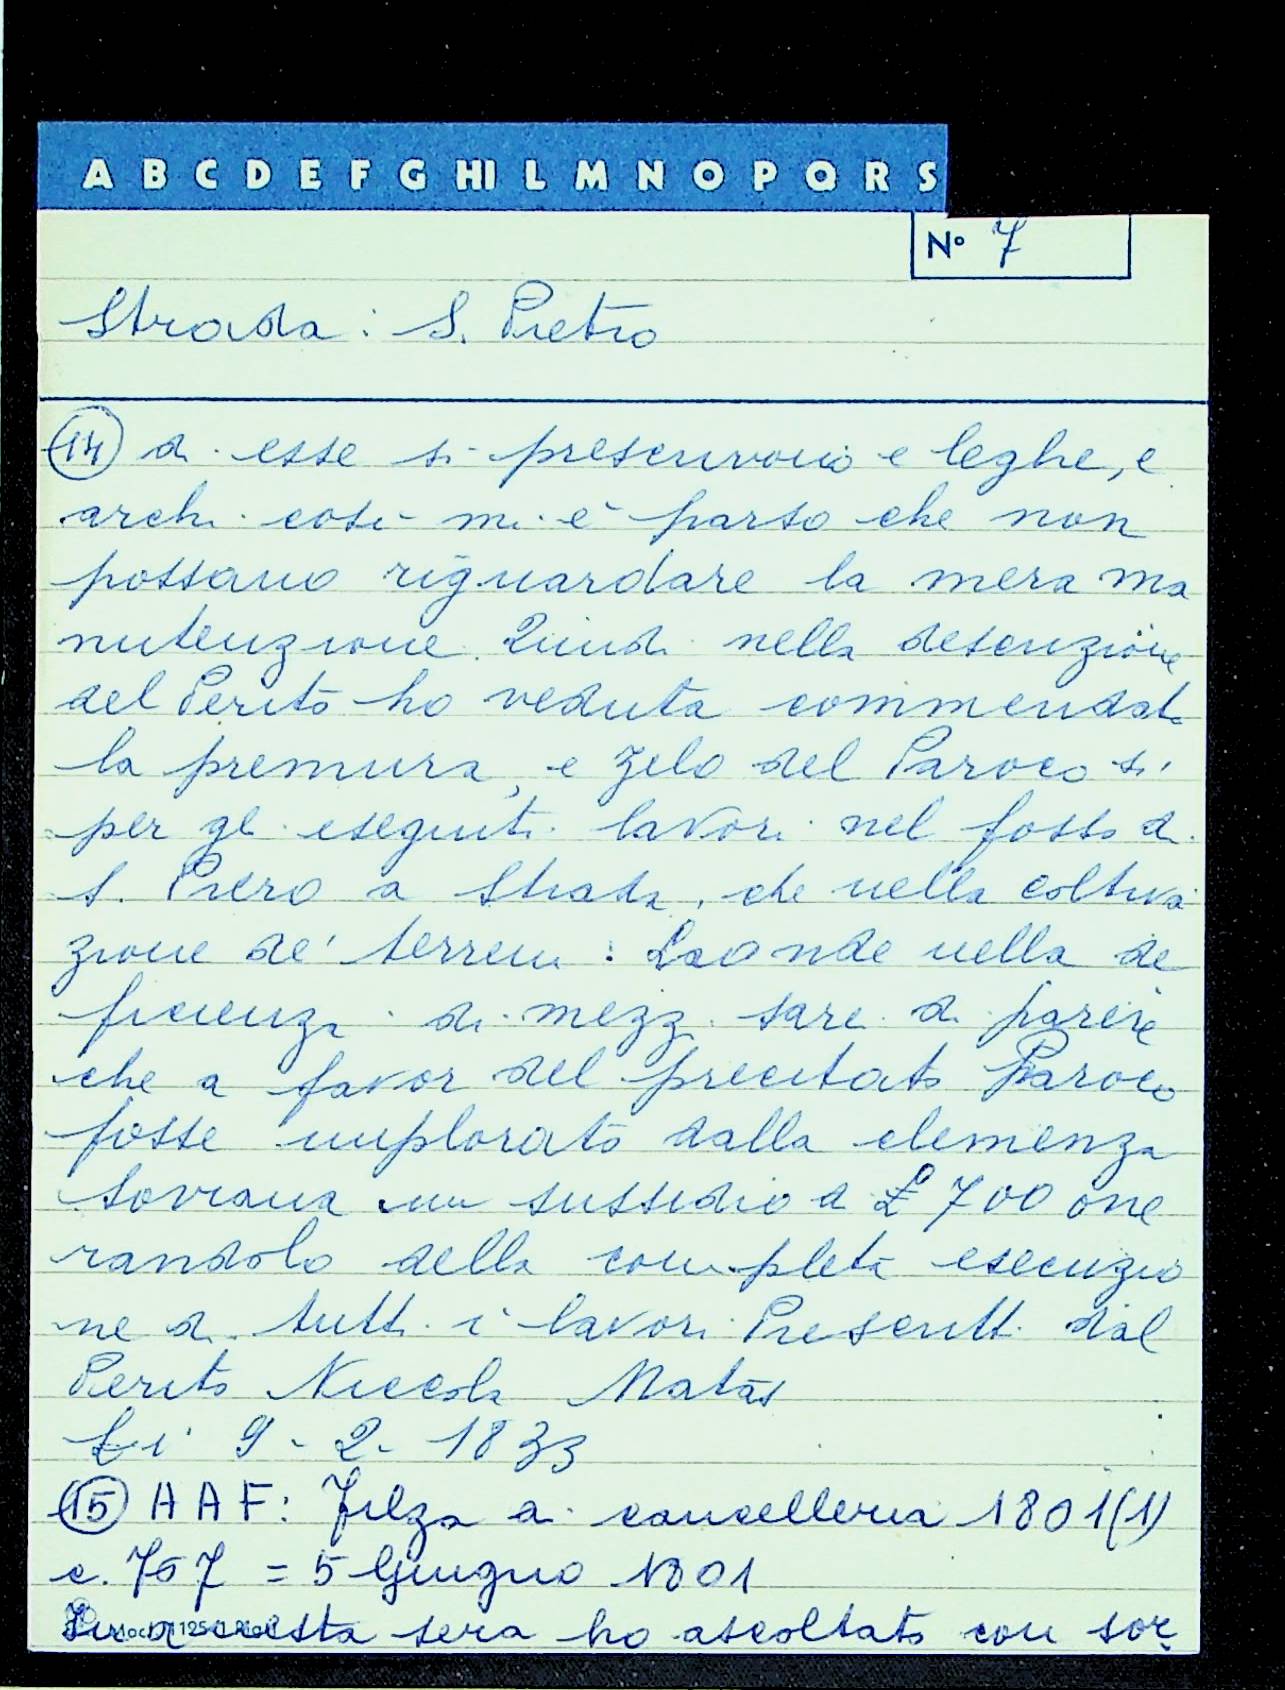 A B C D E F G HI L M N O P Q R S
N° 7
Strada: S. Pietro
(14) di esse si prescrivono e leghe, e
archi così mi è parso che non
possano riguardare la mera ma
nutenzione. Quindi nella descrizione
del Perito ho veduta commendata
la premura, e zelo del Paroco sì
per gli eseguiti lavori nel fosso di
S. Piero a Strada, che nella coltiva
zione de' terreni: Laonde nella de
ficienza di mezzi sarei di parere
che a favor del precitato Paroco
fosse implorato dalla clemenza
Sovrana un sussidio di £ 700 one
randolo della completa esecuzio
ne di tutti i lavori Prescritti dal
Perito Niccola Matas
Li 9-2-1833
(15) AAF: Filza di cancelleria 1801(1)
c. 757 = 5 Giugno 1801
In questa sera ho ascoltato con sor